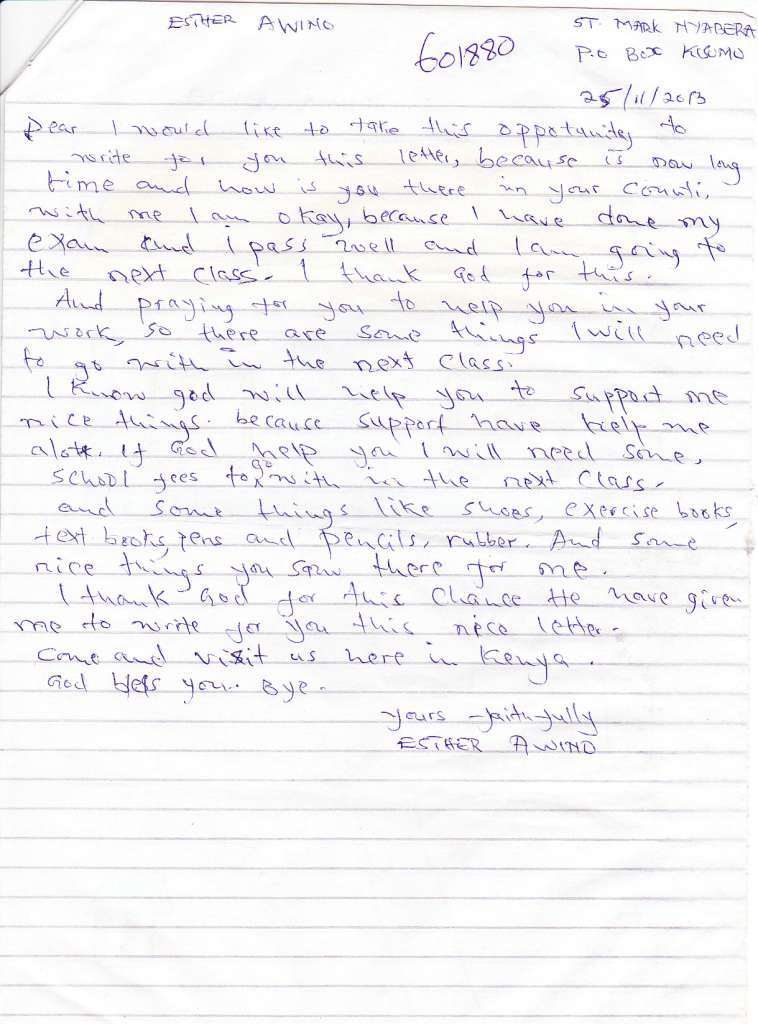 ESTHER AWINO
ST. MARK NYABERA
601880
P.O BOX KISUMU
25/11/2013
Dear I would like to take this oppotunitey to
write for you this letter, because is now long
time and how is you there in your Counti,
with me I am okay, because I have done my
exam and I pass well and I am going to
the next class. I thank God for this.
And praying for you to help you in your
work, so there are some things I will need
to go with in the next class.
I know god will help you to support me
nice things. because support have help me
alot. If God help you I will need some,
school fees to go with in the next class,
and some things like shoes, exercise books,
text books, pens and pencils, rubber. And some
nice things you saw there for me.
I thank God for this chance He have given
me to write for you this nece letter.
Come and visit us here in Kenya.
God bless you.. Bye.
yours faithfully
ESTHER AWINO